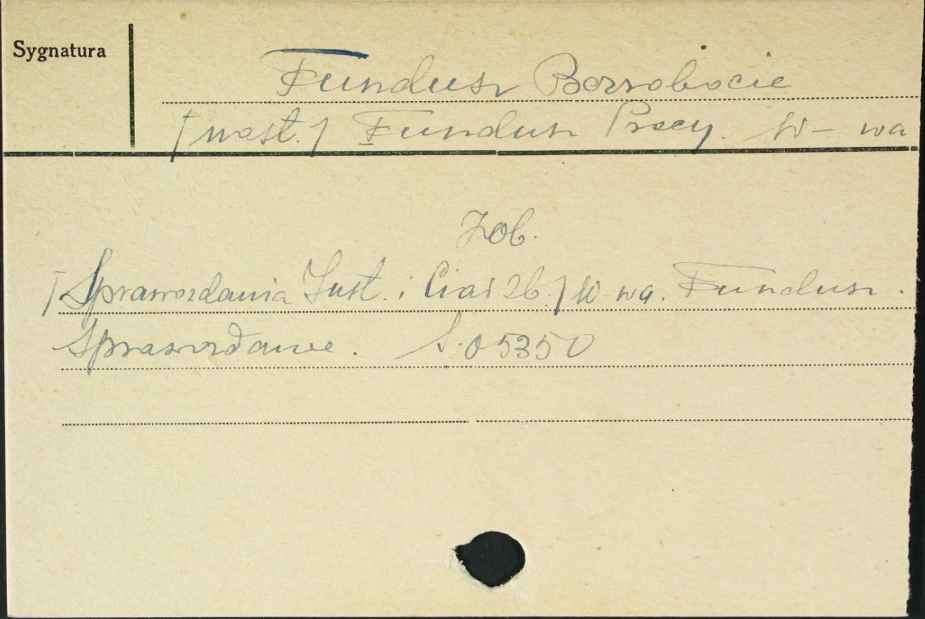 Sygnatura
Fundusz Bezrobocie
[nast.] Fundusz Pracy. W-wa
Zob.
[Sprawozdania Inst. i Ciał Zb.] W-wa. Fundusz.
Sprawozdanie. S. 05350